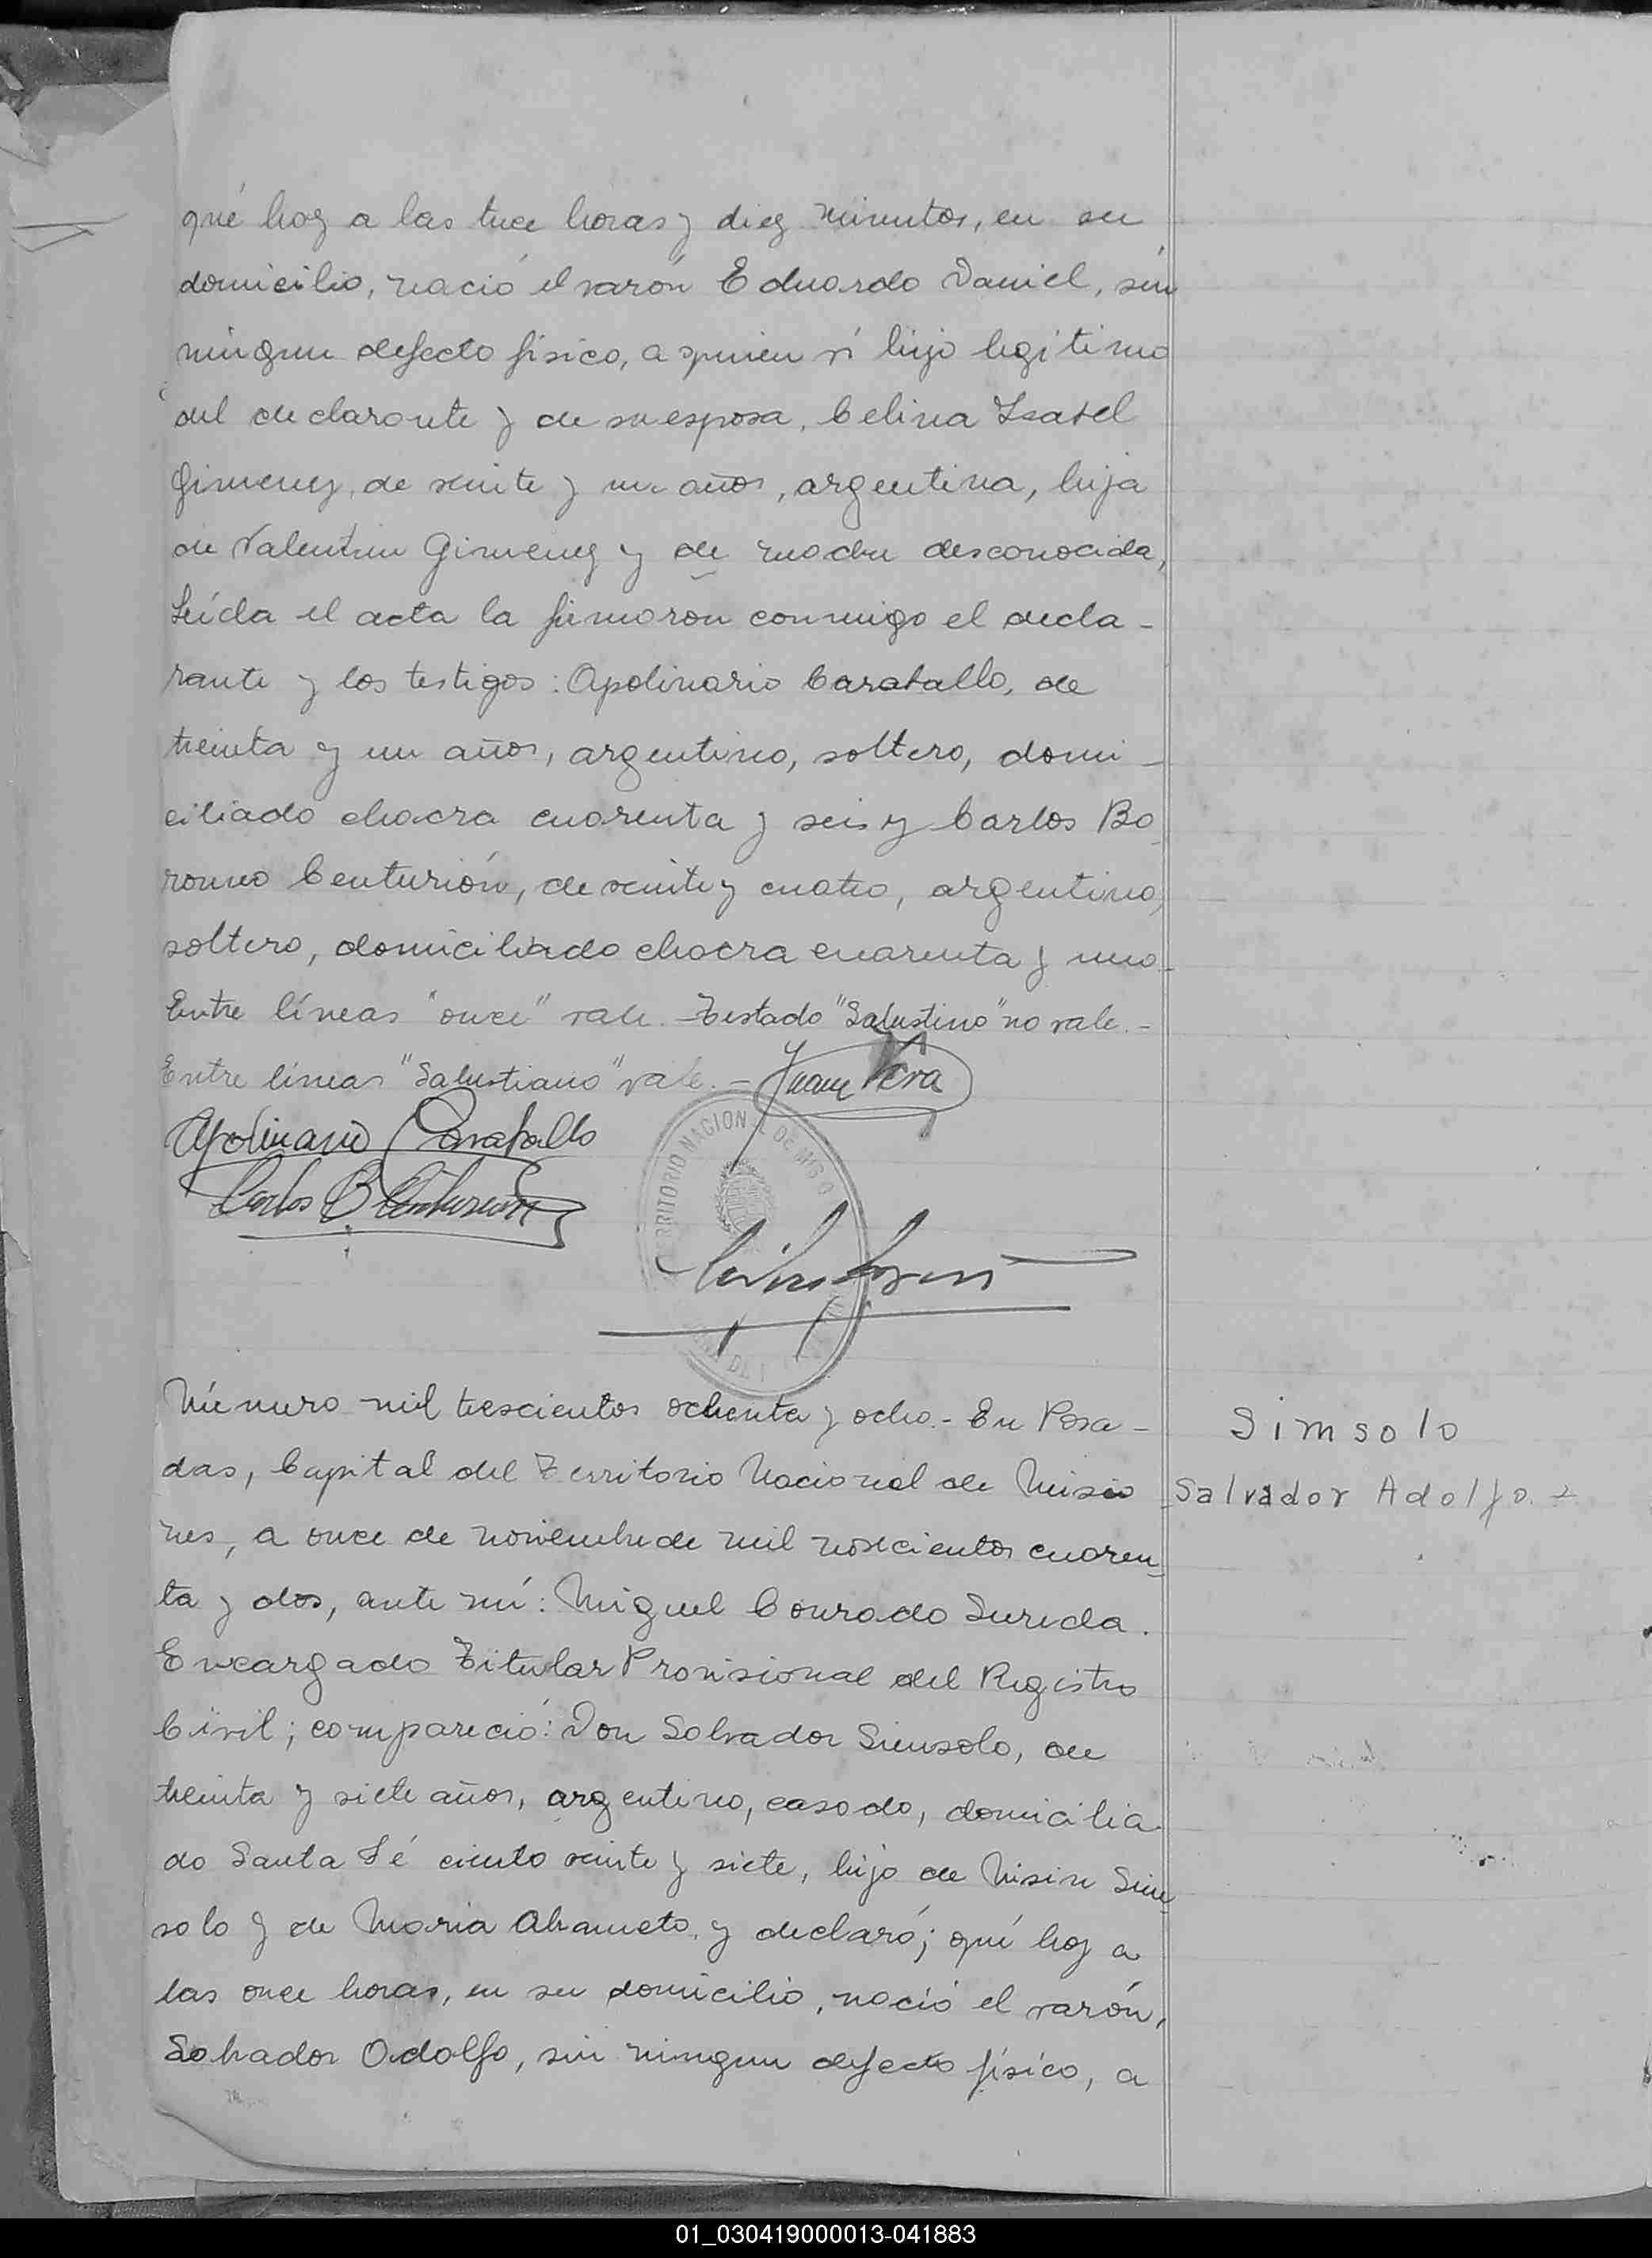 qué hoy a las trece horas y diez minutos, en su
domicilio, nació el varón Eduardo Daniel, sin
ningun defecto físico, a quien vi hijo legitimo
del declarante y de su esposa, Celina Isabel
Gimenez, de veinte y un años, argentina, hija
de Valentin Gimenez y de madre desconocida,
Leída el acta la firmaron conmigo el decla-
rante y los testigos: Apolinario Caraballo, de
treinta y un años, argentino, soltero, domi-
ciliado chacra cuarenta y seis y Carlos Bo
romeo Centurión, de veinte y cuatro, argentino,
soltero, domiciliado chacra cuarenta y uno-
Entre líneas "once" vale.-Testado "Salustino" no vale.-
Entre líneas "Salustiano" vale.- Juan Vera
Apolinario Caraballo
Carlos B Centurión
TERRITORIO NACIONAL DE
Número mil trescientos ochenta y ocho.- En Posa-
das, Capital del Territorio Nacional de Misio
nes, a once de noviembre de mil novecientos cuaren
ta y dos, ante mí: Miguel Conrado Sureda.
Encargado Titular Provisional del Registro
Civil; compareció: Don Salvador Simsolo, de
treinta y siete años, argentino, casado, domicilia
do Santa Fé ciento veinte y siete, hijo de Nisin Sim
solo y de Maria y declaró; qué hoy a
las once horas, en su domicilio, nació el varón,
Salvador Adolfo, sin ningun defecto físico, a
Simsolo
Salvador Adolfo.-
01_030419000013-041883